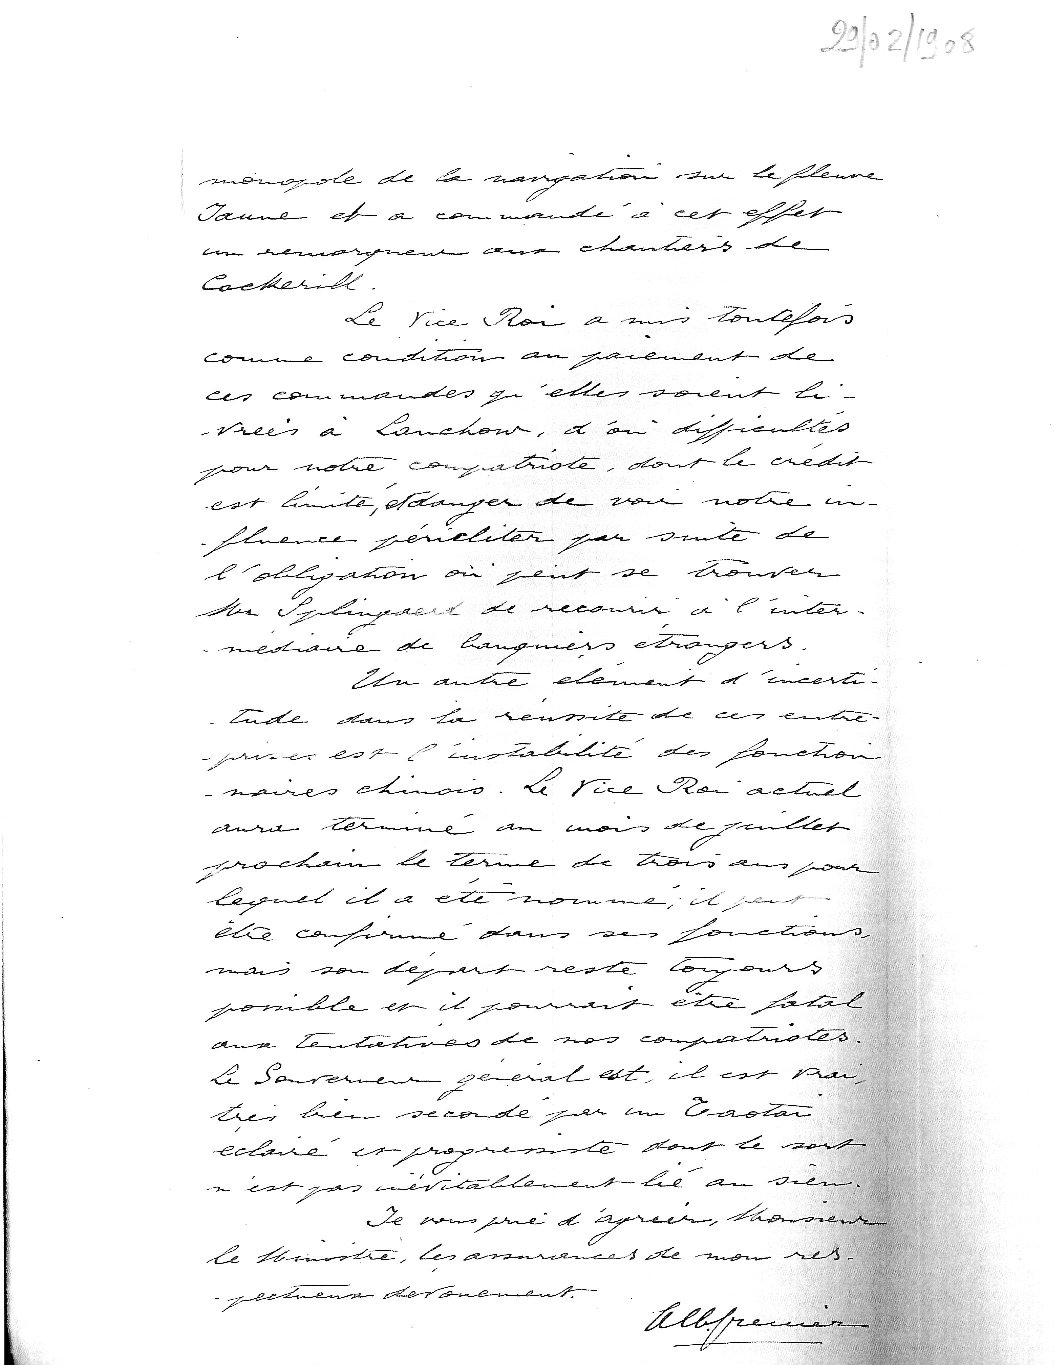 29/02/1908
monopole de la navigation sur le fleuve
Jaune et a commandé à cet effet
un remorqueur aux chantiers de
Cockerill.
Le Vice Roi a mis toutefois
comme condition au paiement de
ces commandes qu'elles soient li-
-vrées à Lanchow, d'où difficultés
pour notre compatriote, dont le crédit
est limité, et danger de voir notre in-
-fluence péricliter par suite de
l'obligation où peut se trouver
Mr Splingaerd de recourir à l'inter-
-médiaire de banquiers étrangers.
Un autre élément d'incerti-
-tude dans la réussite de ces entre-
-prises est l'instabilité des fonction
-naires chinois. Le Vice Roi actuel
aura terminé au mois de juillet
prochain le terme de trois ans pour
lequel il a été nommé; il peut
être confirmé dans ses fonctions,
mais son départ reste toujours
possible et il pourrait être fatal
aux tentatives de nos compatriotes.
Le Gouverneur général est, il est vrai,
très bien secondé par un Taotai
éclairé et progressiste dont le sort
n'est pas inévitablement lié au sien.
Je vous prie d'agréer, Monsieur
le Ministre, les assurances de mon res-
-pectueux dévouement.